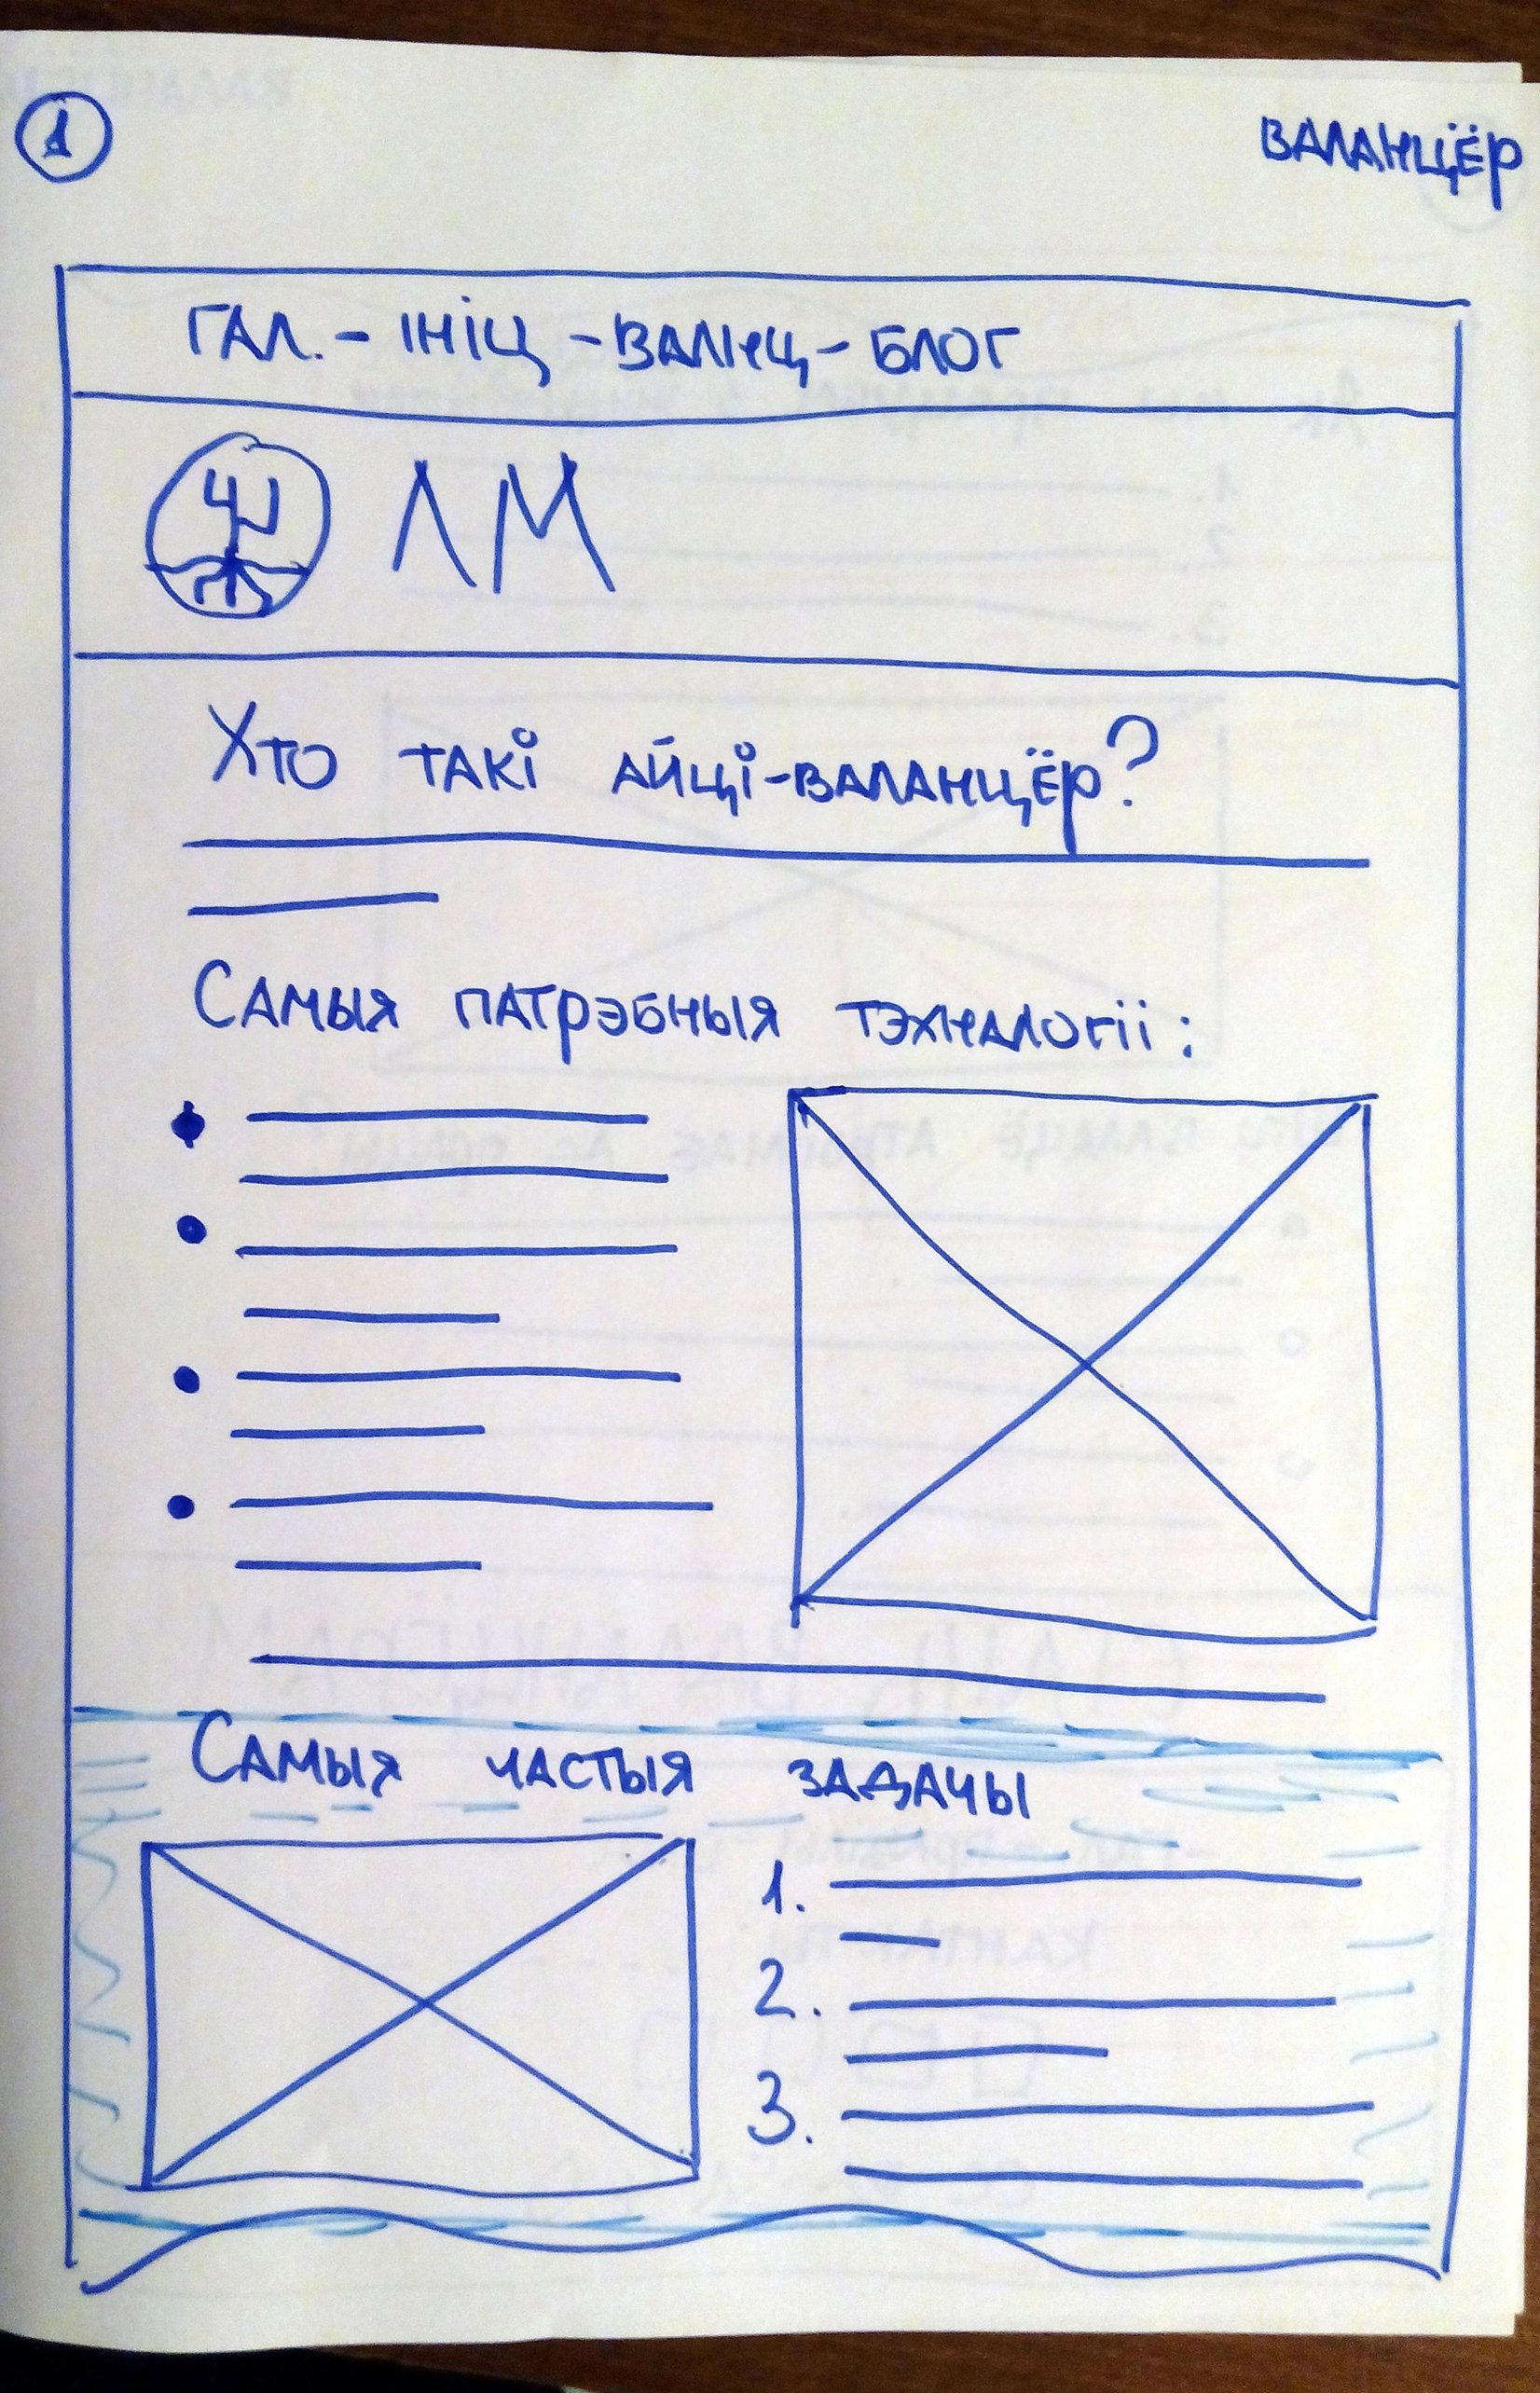 1
ВАЛАНЦЁР
ГАЛ. - ІНІЦ - ВАЛНЦ - БЛОГ
ЛМ
Хто такі айці-валанцёр?
Самыя патрэбныя тэхналогіі:
Самыя частыя задачы
1.
2.
3.